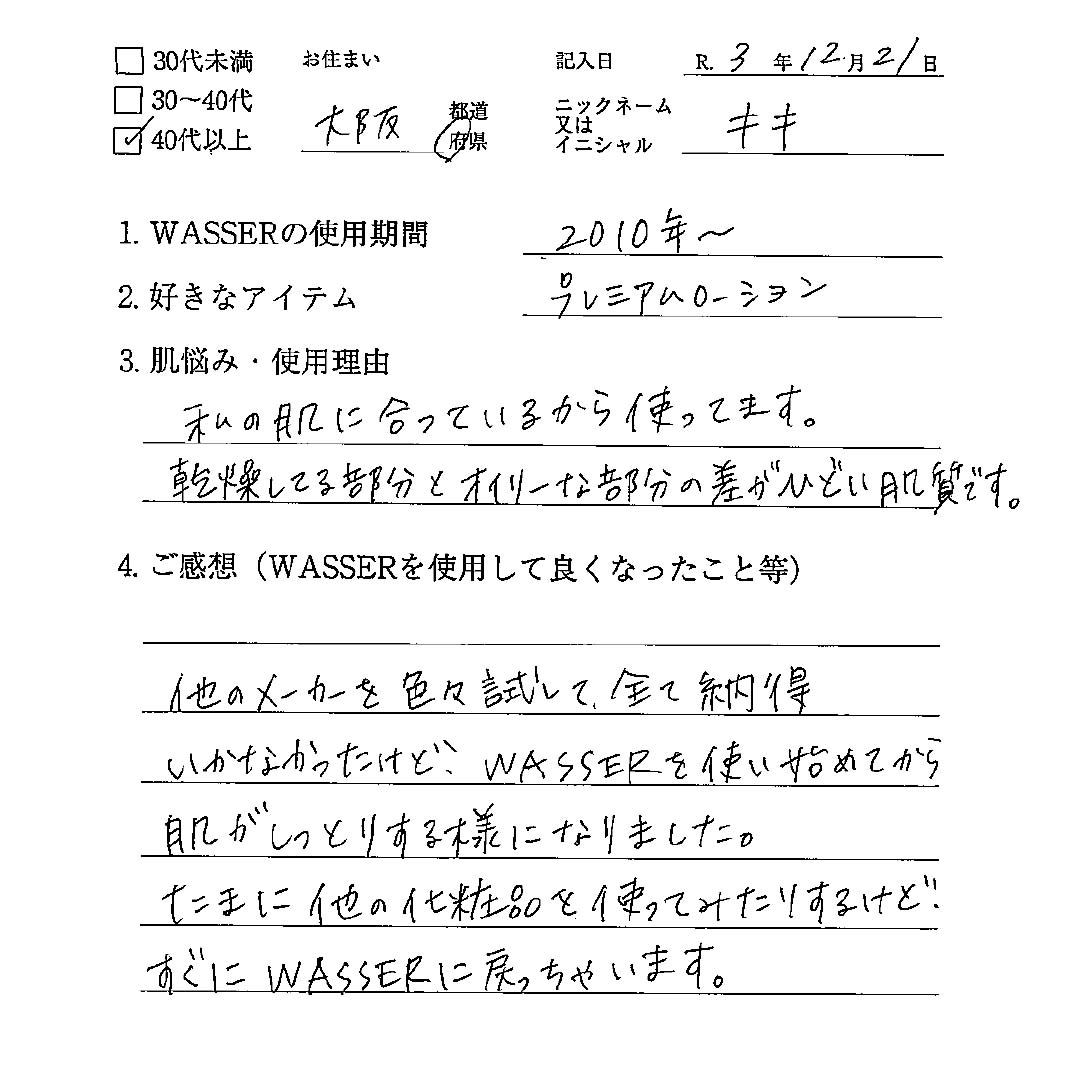 30代未満 お住まい 記入日 R. 3 年 12 月 21 日
30〜40代 大阪 都道府県 ニックネーム又はイニシャル キキ
40代以上
1. WASSERの使用期間 2010年〜
2. 好きなアイテム プレミアムローション
3. 肌悩み・使用理由
私の肌に合っているから使ってます。
乾燥してる部分とオイリーな部分の差がひどい肌質です。
4. ご感想（WASSERを使用して良くなったこと等）
他のメーカーを色々試して、全て納得
いかなかったけど、WASSERを使い始めてから
肌がしっとりする様になりました。
たまに他の化粧品を使ってみたりするけど、
すぐにWASSERに戻っちゃいます。